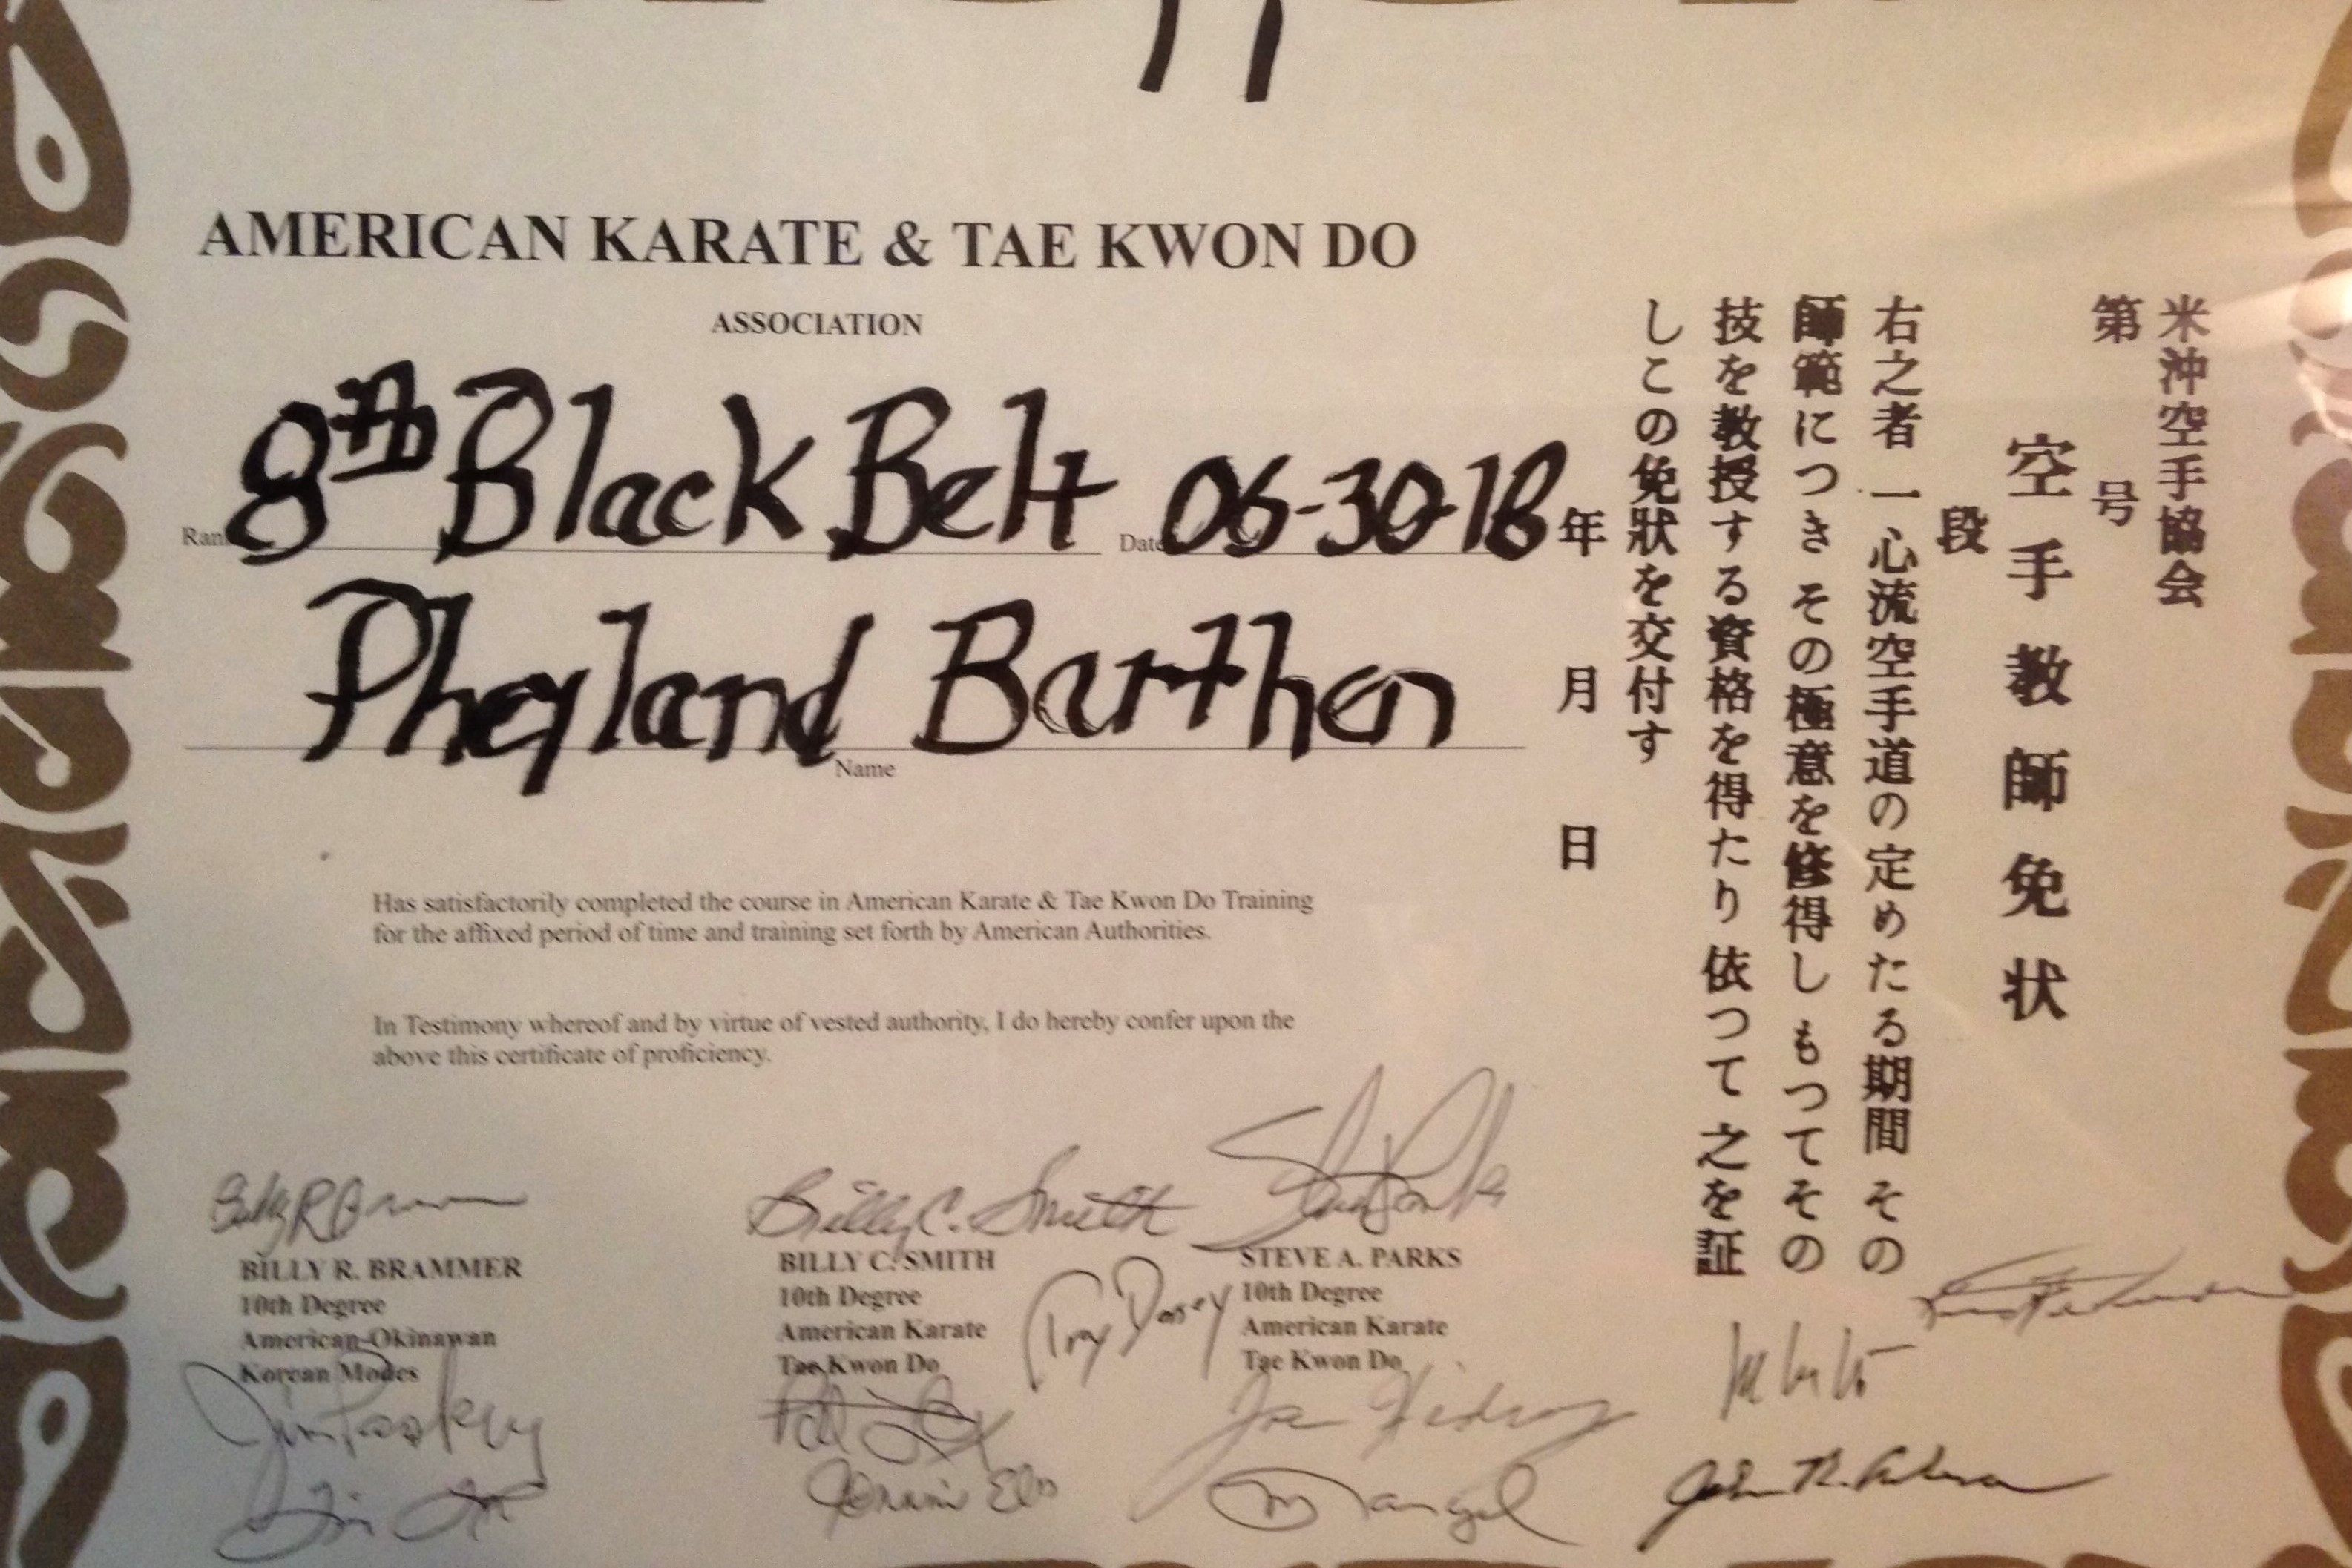 AMERICAN KARATE & TAE KWON DO
ASSOCIATION
Rank 8th Black Belt Date 06-30-18
Pheyland Barthen
Name
Has satisfactorily completed the course in American Karate & Tae Kwon Do Training
for the affixed period of time and training set forth by American Authorities.
In Testimony whereof and by virtue of vested authority, I do hereby confer upon the
above this certificate of proficiency.
Billy R Brammer
BILLY R. BRAMMER
10th Degree
American-Okinawan
Korean Modes
Billy C. Smith
BILLY C. SMITH
10th Degree
American Karate
Tae Kwon Do
Steve Parks
STEVE A. PARKS
10th Degree
American Karate
Tae Kwon Do
Troy Dorsey
米沖空手協会
第 号
空手教師免状
段
右之者一心流空手道の定めたる期間その
師範につきその極意を修得しもつてその
技を教授する資格を得たり依つて之を証
しこの免狀を交付す
年 月 日